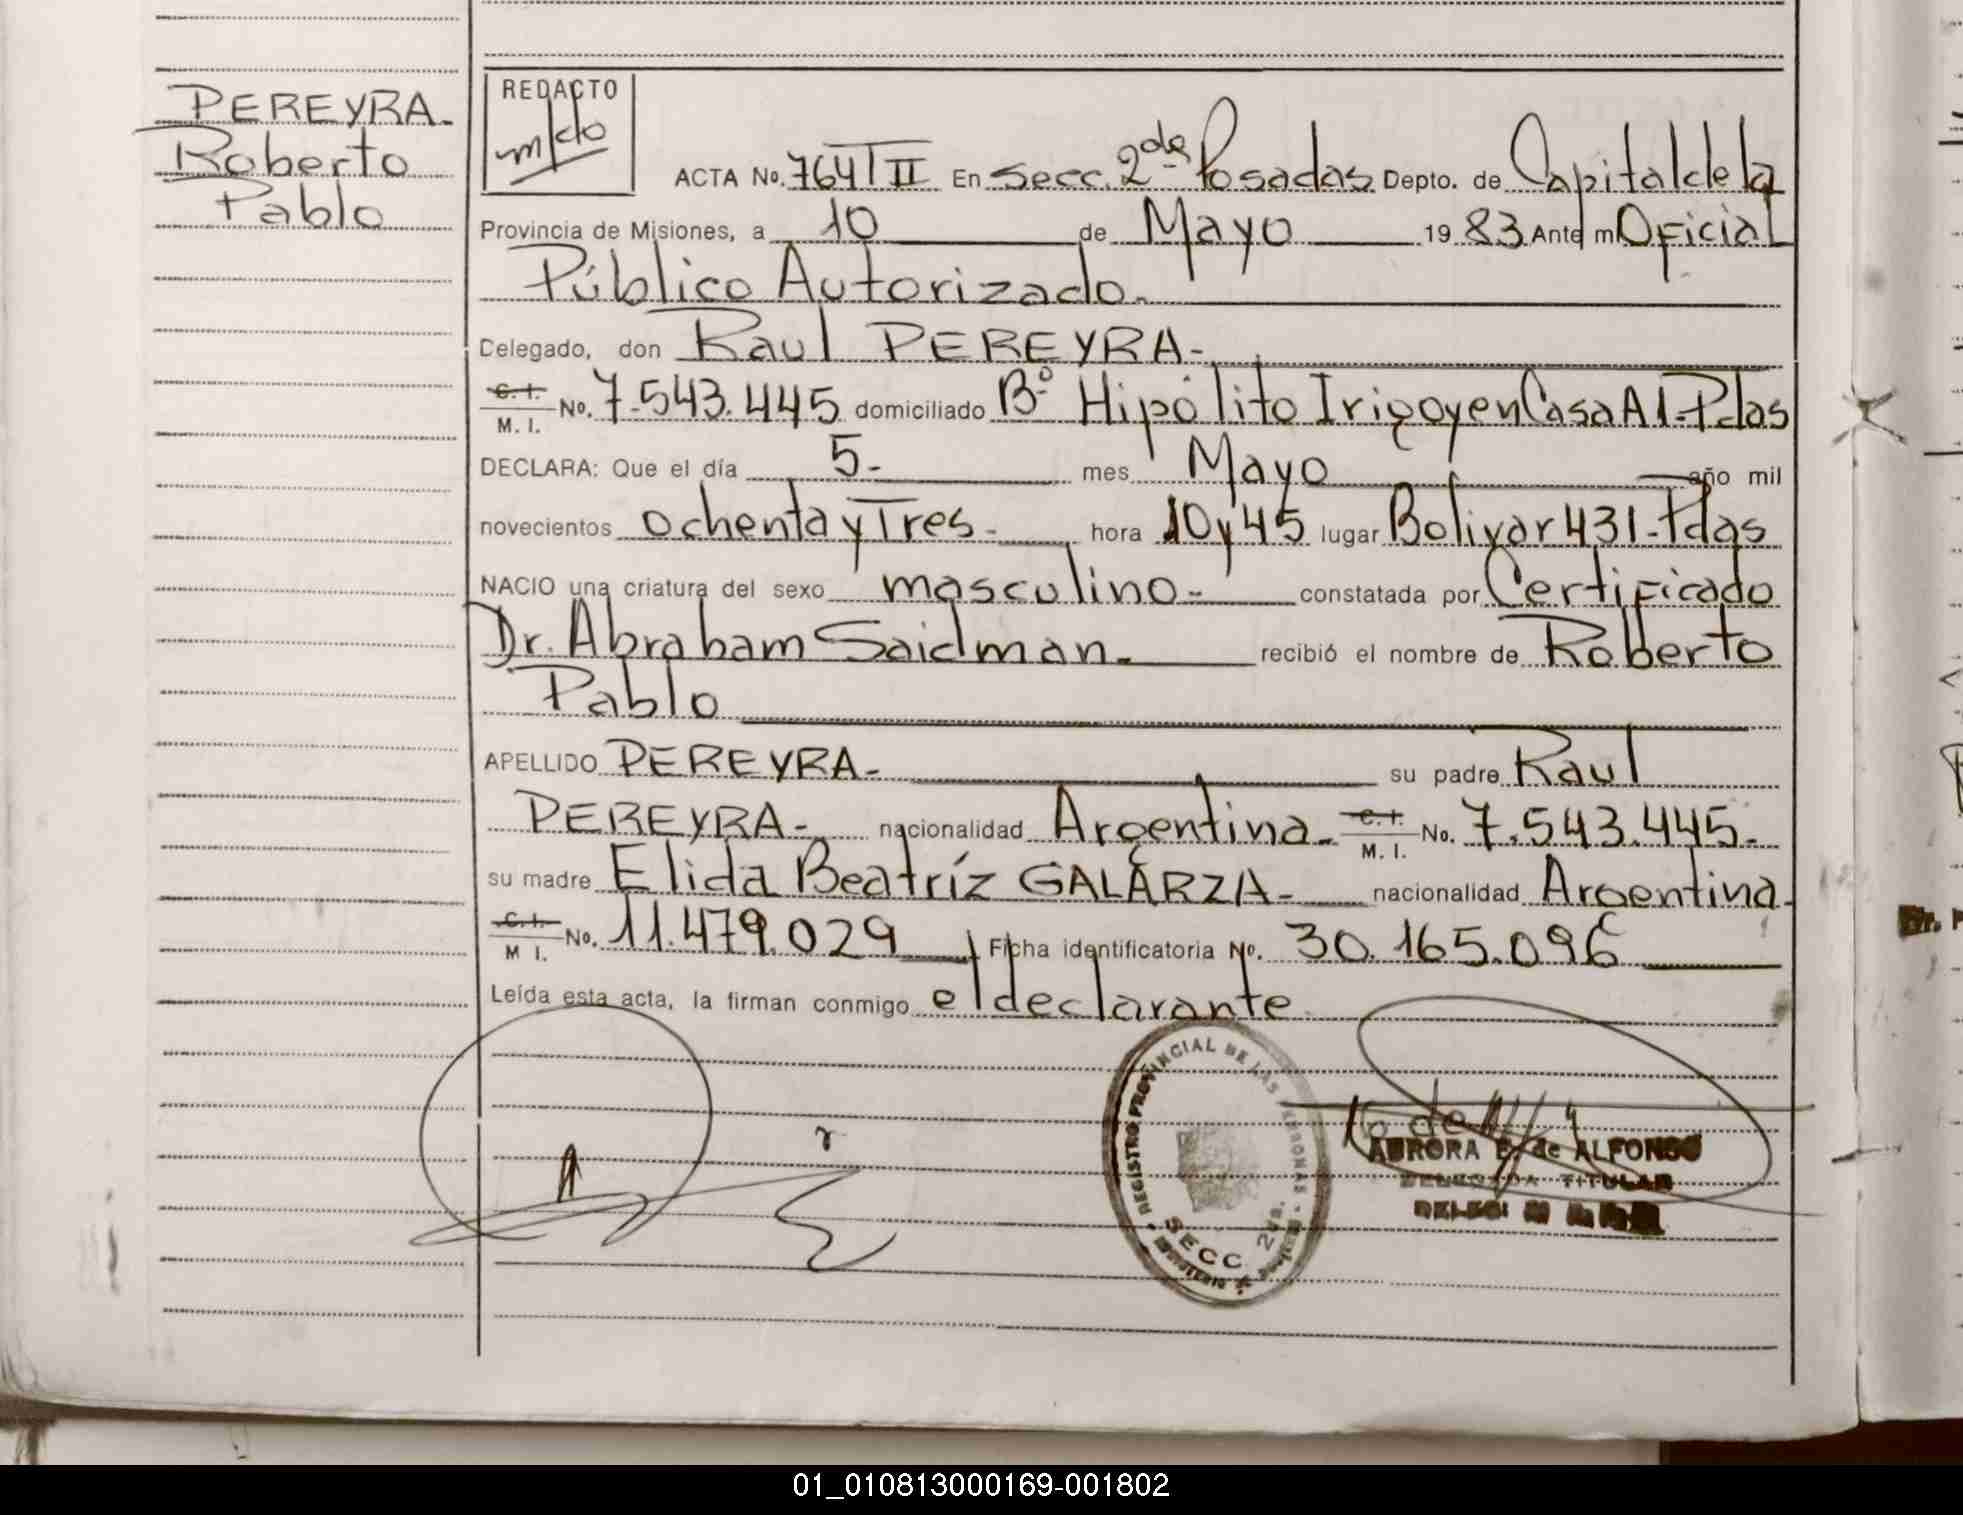 PEREYRA-
Roberto
Pablo
REDACTO
ACTA No. 764 T II En Secc. 2da de Posadas Depto. de Capital de la
Provincia de Misiones, a 10 de Mayo 19 83 Ante mí Oficial
Público Autorizado-
Delegado, don Raul PEREYRA-
C. I. M. I. No. 7.543.445 domiciliado Bº Hipólito Irigoyen Casa A1-Pdas
DECLARA: Que el día 5- mes Mayo año mil
novecientos ochenta y Tres- hora 10 y 45 lugar Bolivar 431-Pdas
NACIO una criatura del sexo masculino- constatada por Certificado
Dr. Abraham Saidman- recibió el nombre de Roberto
Pablo
APELLIDO PEREYRA- su padre Raul
PEREYRA- nacionalidad Argentina- C. I. M. I. No. 7.543.445-
su madre Elida Beatríz GALARZA- nacionalidad Argentina-
C. I. M I. No. 11.479.029 Ficha identificatoria No. 30.165.096
Leída esta acta, la firman conmigo el declarante
REGISTRO PROVINCIAL DE LAS PERSONAS
SECC 2da.
AURORA E. de ALFONSO
DELEGADA TITULAR
01_010813000169-001802